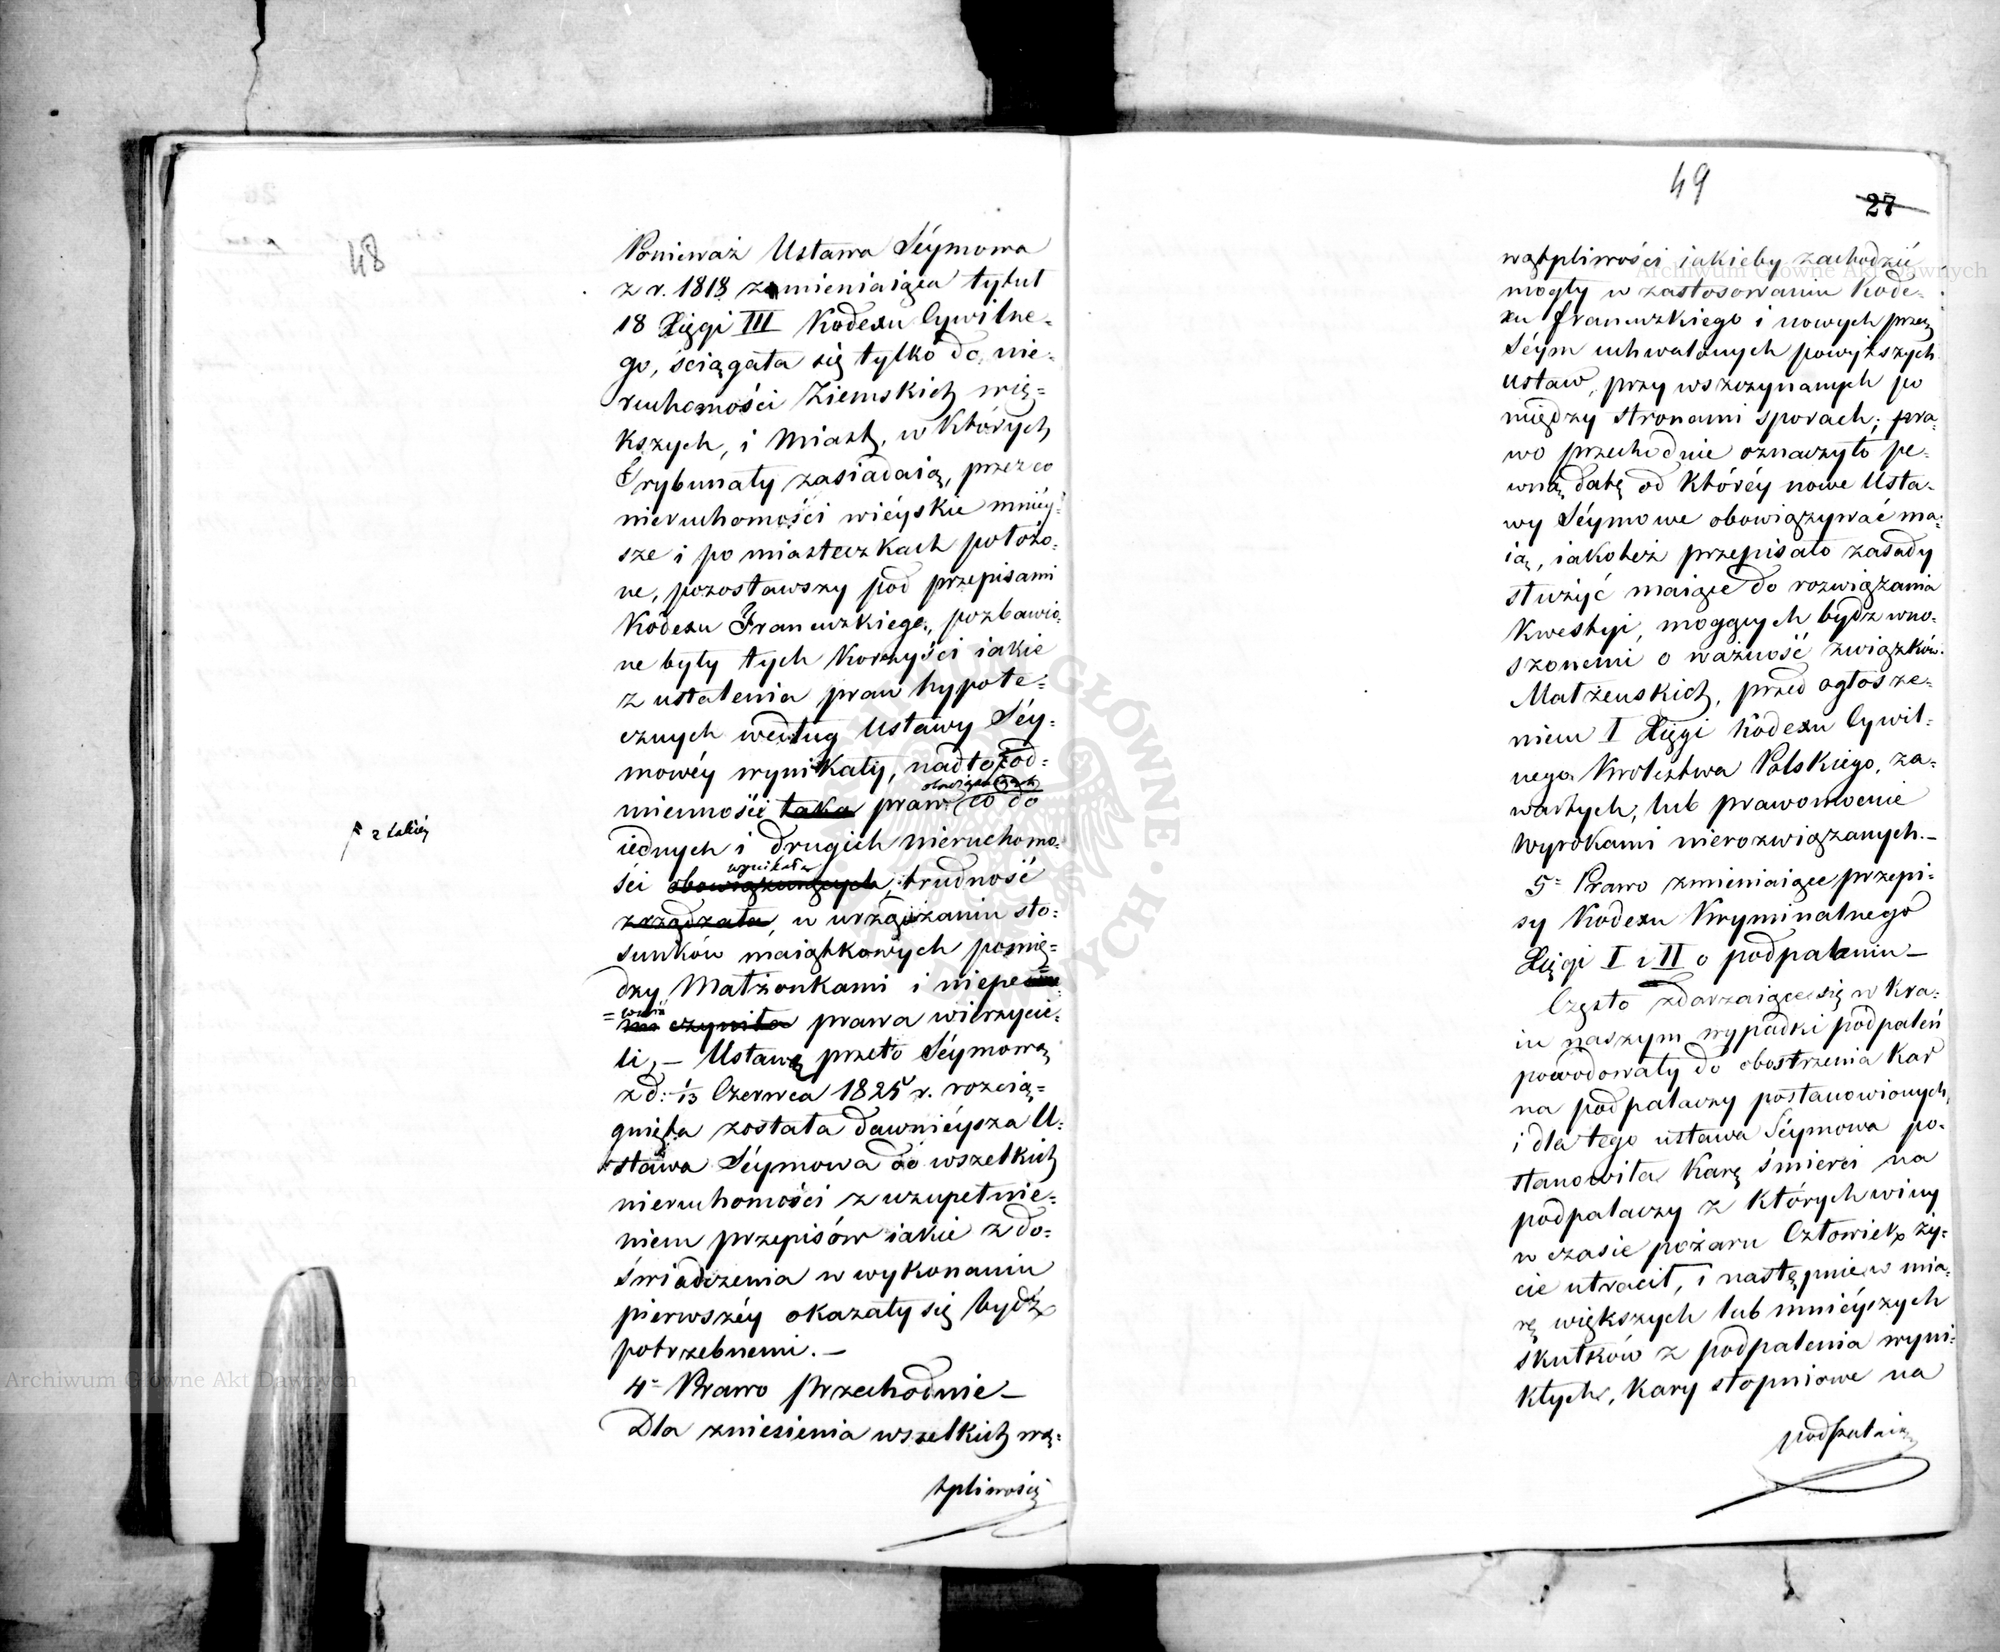 48
Ponieważ Ustawa Séymowa
z r. 1818 zamieniaiąca tytuł
18 Xięgi III Kodexu Cywilne-
go, ściągała się tylko do nie-
ruchomości Ziemskich wię-
kszych, i Miast, w których
Trybunały zasiadaią, przez co
nieruchomości wiéyskie mniéy-
sze i po miasteczkach położo-
ne, pozostawszy pod przepisami
Kodexu Francuzkiego, pozbawio-
ne były tych korzyści iakie
z ustalenia praw hypote-
cznych według Ustawy Séy-
mowéy wynikały, nadto od-
obowiązuiących
mienności taka praw co do
z takiéy
iednych i drugich nieruchomo-
wynikała
ści obowiązuiących, trudność
zrządzała, w urządzaniu sto-
sunków maiątkowych pomię-
dzy Małżonkami i niepe
czyniła prawa wierzycie-
li, — Ustawą przeto Séymową
z d: 1/13 Czerwca 1825 r. rozcią-
gnięta została dawniéysza U-
stawa Séymowa do wszelkich
nieruchomości z uzupełnie-
niem przepisów iakie z do-
świadczenia w wykonaniu
pierwszéy okazały się bydź
potrzebnemi. —
4= Prawo przechodnie —
Dla zniesienia wszelkich wą-
tpliwości
49
27
wątpliwości iakieby zachodzić
mogły w zastosowaniu Kode-
xu francuzkiego i nowych przez
Séym uchwalonych powyższych
ustaw, przy wszczynanych po
między stronami sporach; pra-
wo przechodnie oznaczyło pe-
wną datę od któréy nowe Usta-
wy Séymowe obowiązywać ma-
ią, iakoteż przepisało zasady
służyć maiące do rozwiązania
Kwestyi, mogących bydź wno-
szonemi o ważność związków
Małżeńskich, przed ogłosze-
niem I Xięgi Kodexu Cywil-
nego Królestwa Polskiego, za-
wartych, lub prawomocnie
Wyrokami nierozwiązanych. —
5= Prawo zmieniaiące przepi-
sy Kodexu Kryminalnego
Xięgi I i II o podpaleniu —
Często zdarzaiące się w Kra-
iu naszym wypadki podpaleń
powodowały do obostrzenia Kar
na podpalaczy postanowionych,
i dla tego ustawa Séymowa po-
stanowiła Karę śmierci na
podpalaczy z których winy
w czasie pożaru Człowiek ży-
cie utracił, i następnie w mia-
rę większych lub mniéyszych
skutków z podpalenia wyni-
kłych, Kary stopniowe na
Archiwum Główne Akt Dawnych
Archiwum Główne Akt Dawnych